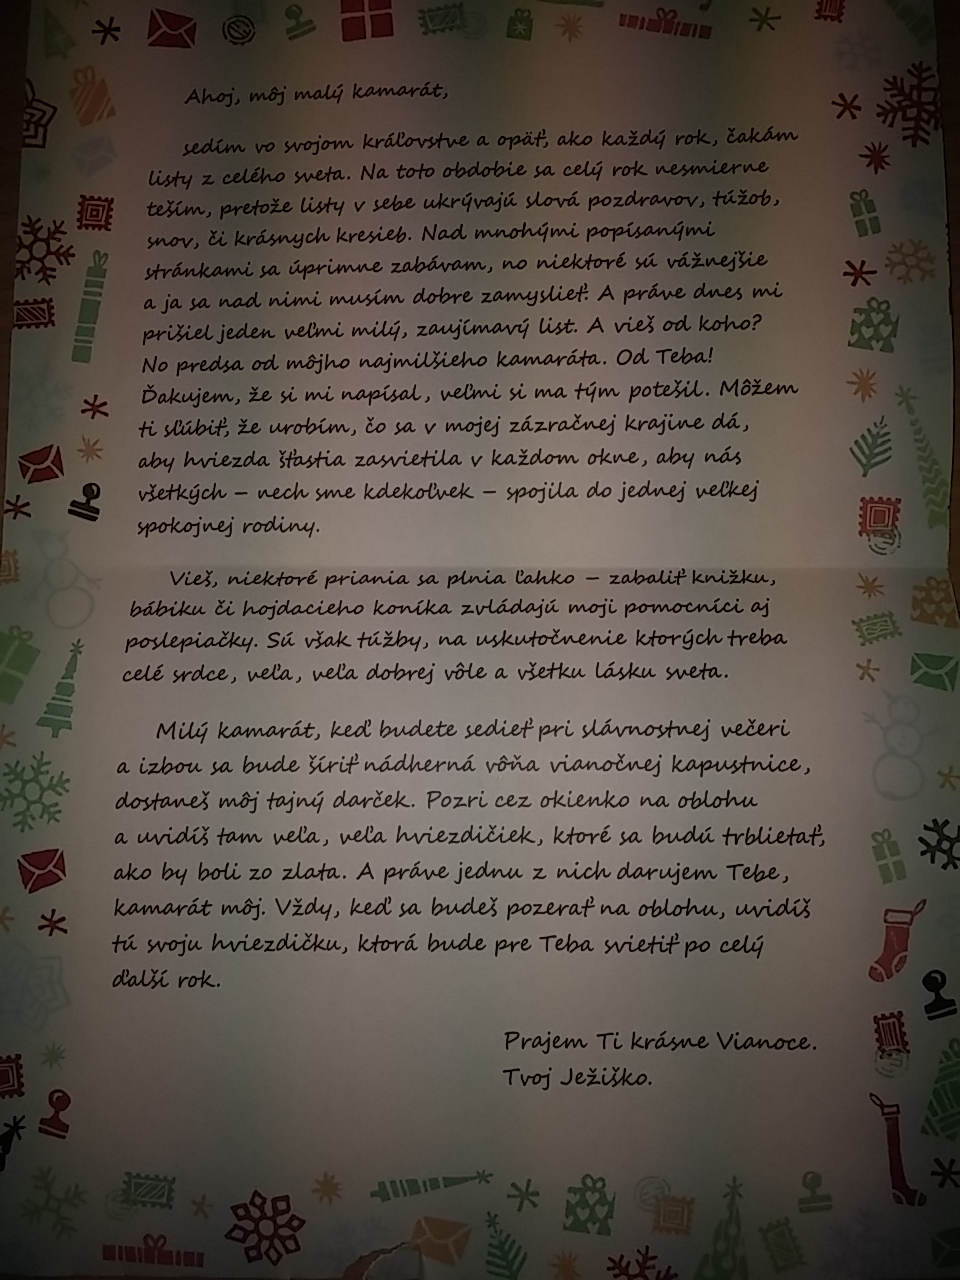 Ahoj, môj malý kamarát,
sedím vo svojom kráľovstve a opäť, ako každý rok, čakám
listy z celého sveta. Na toto obdobie sa celý rok nesmierne
teším, pretože listy v sebe ukrývajú slová pozdravov, túžob,
snov, či krásnych kresieb. Nad mnohými popísanými
stránkami sa úprimne zabávam, no niektoré sú vážnejšie
a ja sa nad nimi musím dobre zamyslieť. A práve dnes mi
prišiel jeden veľmi milý, zaujímavý list. A vieš od koho?
No predsa od môjho najmilšieho kamaráta. Od Teba!
Ďakujem, že si mi napísal, veľmi si ma tým potešil. Môžem
ti sľúbiť, že urobím, čo sa v mojej zázračnej krajine dá,
aby hviezda šťastia zasvietila v každom okne, aby nás
všetkých – nech sme kdekoľvek – spojila do jednej veľkej
spokojnej rodiny.
Vieš, niektoré priania sa plnia ľahko – zabaliť knižku,
bábiku či hojdacieho koníka zvládajú moji pomocníci aj
poslepiačky. Sú však túžby, na uskutočnenie ktorých treba
celé srdce, veľa, veľa dobrej vôle a všetku lásku sveta.
Milý kamarát, keď budete sedieť pri slávnostnej večeri
a izbou sa bude šíriť nádherná vôňa vianočnej kapustnice,
dostaneš môj tajný darček. Pozri cez okienko na oblohu
a uvidíš tam veľa, veľa hviezdičiek, ktoré sa budú trblietať,
ako by boli zo zlata. A práve jednu z nich darujem Tebe,
kamarát môj. Vždy, keď sa budeš pozerať na oblohu, uvidíš
tú svoju hviezdičku, ktorá bude pre Teba svietiť po celý
ďalší rok.
Prajem Ti krásne Vianoce.
Tvoj Ježiško.